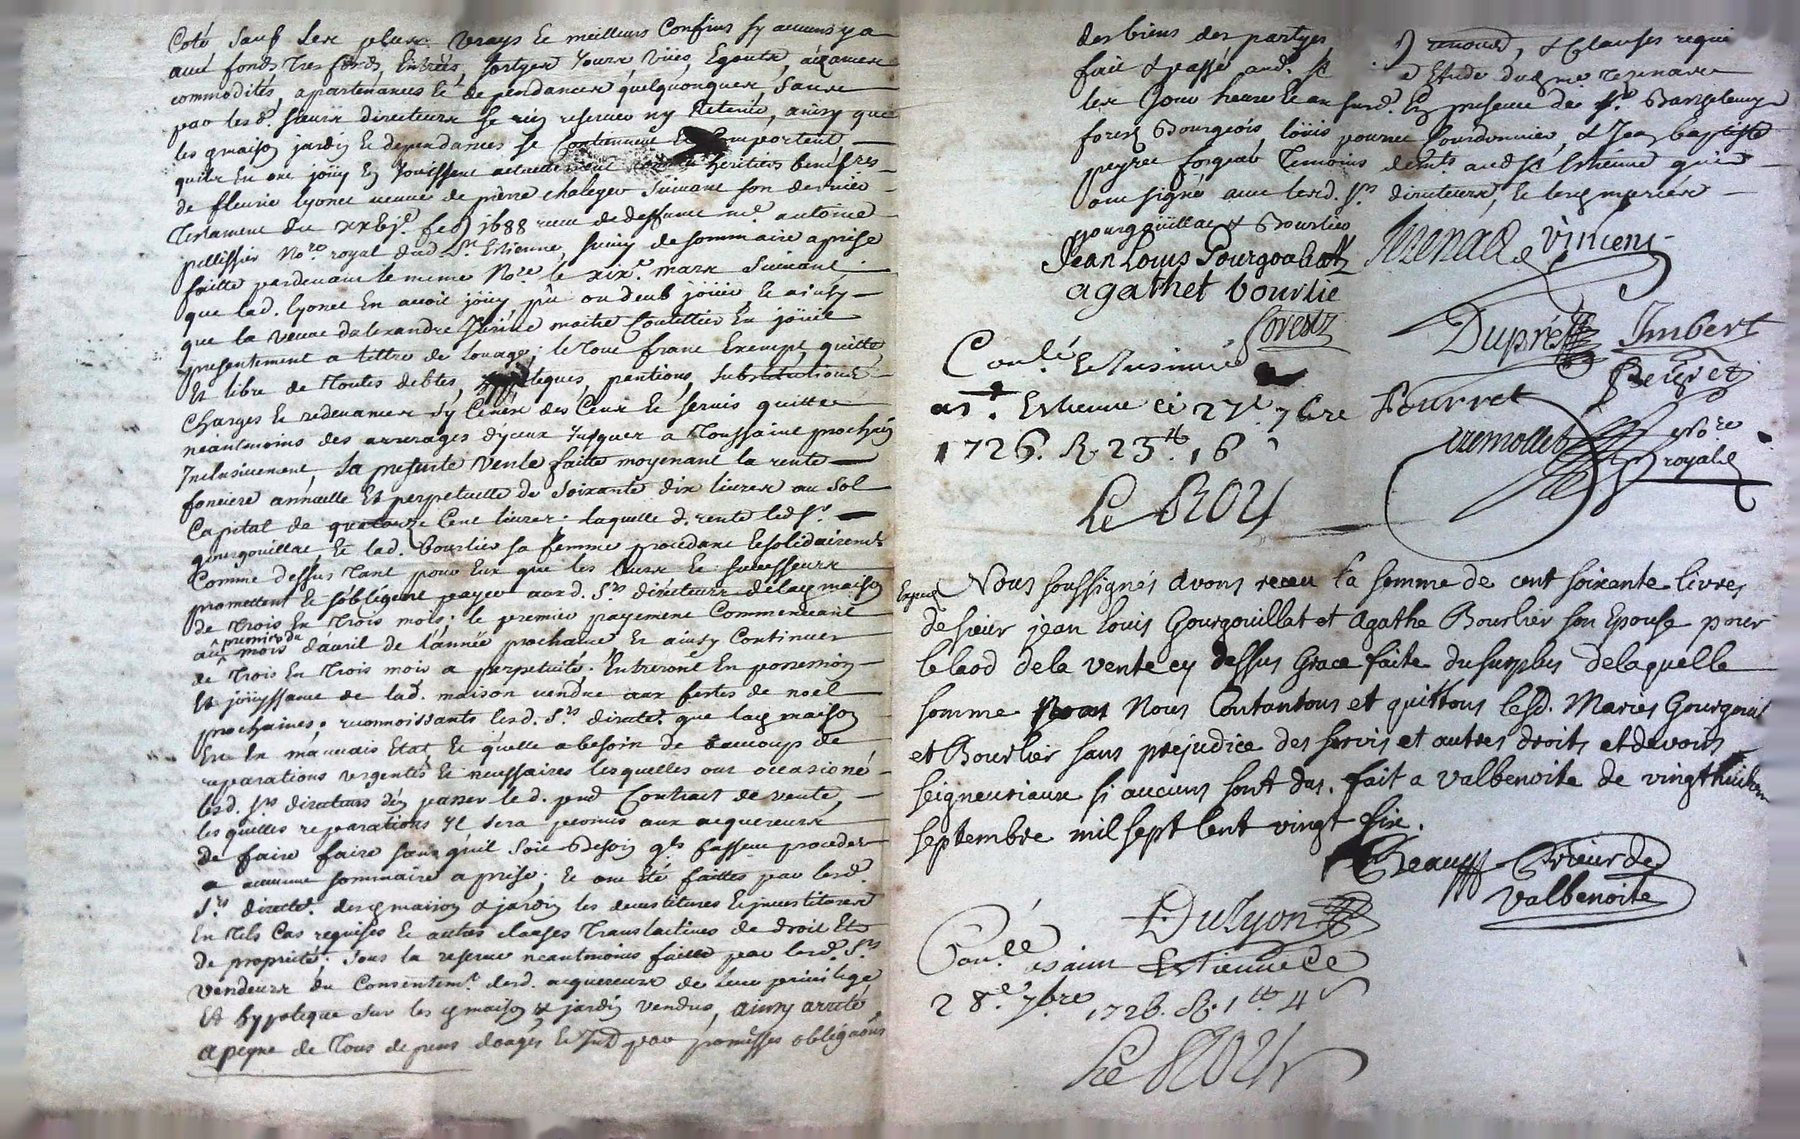 Coté, sauf ses plus vrays et meilleurs Confins sy aucuns y a
avec fonds tres fonds, Entrées, sortyes Jours, Vües, Egouts, aizances
commodités, apartenances et dependances quelquonques, sans
par lesd. sieurs directeurs se rien reserver ny Retenir, ainsy que
les maison jardin et dependances se contiennent et comportent,
qu'ils en ont joüy En Jouissent actuellement
de fleurie lyonet veuve de pierre chaleyer suivant son dernier
Testament du xxbje. feb 1688 receu de deffunct me. antoine
pellissier Nore royal dud. St. Estienne, suivy de sommaire aprise
faitte pardevant le meme Nore le xixe. mars suivant,
que lad. lyonet En avoit joüy pû ou deub joüir, et ainsy
que la veuve dalexandre maitre Coutellier En joüit
presentement a tiltre de louage; le tout franc Exempt, quitte,
Et libre de toutes debtes, hypoteques, pentions, substitutions
Charges et redevances sy Ce n'est des Cens et servis quitte
néantmoins des arrerages d'yceux jusques a Toussaint prochain
Inclusivement, la presente vente faitte moyenant la rente
fonciere annuelle Et perpetuelle de soixante dix livres au sol
Capital de quatorze Cent livres: laquelle d. rente led. sr.
gourgouillat et lad. bourlier sa femme procedant et solidairement
Comme dessus tant pour Eux que les leurs et successeurs
promettent et s'obligent payer auxd. srs directeurs de lad. maison
de trois En trois mois; le premier payement Commencant
premier du
au mois d'avril de l'année prochaine et ainsy Continuer
de trois En trois mois a perpetuité. Entreront En possession
Et joüyssance de lad. maison vendue aux festes de noel
prochaines; reconnoissants lesd. srs directrs. que lad. maison
Est En mauvais Etat, et qu'elle a besoin de beaucoup de
reparations urgentes et necessaires lesquelles ont occasioné
lesd. srs directeurs d'en passer led. pnt Contrat de vente,
lesquelles reparations Il sera permis aux acquereurs
de faire faire sans qu'il soit besoin qls fassent proceder
a aucune sommaire aprise; et ont été faittes par lesd.
srs directrs. desd. maison & jardin les devestitures et investitures
En tels Cas requises et autres clauses translatives de droit Et
de proprieté; sous la reserve neantmoins faitte par lesd. srs
vendeurs du Consentemt. desd. acquereurs de leur privilege
Et hypoteque sur les maison & jardin vendus, ainsy arreté
a peyne de tous depens domages et par promesses obligaõns
des biens des partyes renoncõns, & Clauses requi
fait & passé aud. St Etude dud. me
les jour heure et an susd. En presence de sr. Barthelemy
forest Bourgeois, loüis pourret Courdonnier, & Jean baptiste
peyret forgeur Temoins demts. aud. St. Estienne qui
ont signé avec lesd. srs directeurs, et lesd. mariés
gourgouillat & Bourlier
Jean Louis Gourgoulliatt
agathet bourlie
Thezenas Vincent
forest Dupré Imbert
Peyret
Pourret
nore royal
Conlé. Et insinué
a St. Estienne ce 27e 7bre
1726. R. 23 lt. 16 s
Le Roy
Nous soussignés avons receu la somme de cent soixante livres
de sieur jean louis Gourgouillat et Agathe Bourlier son Epouse pour
le laod de la vente cy dessus Grace faite du surplus de laquelle
somme Nous Contantons et quittons lesd. Mariés Gourgouil
et Bourlier sans prejudice des servis et autres droits et devoirs
seigneuriaux si aucuns sont dus. fait a valbenoite de vingthuitiem
septembre mil sept cent vingt six.
Prieur de
Valbenoite
F. Dulyon
Conlé. a saint Estienne Ce
28e. 7bre 1726. R. 1 lt 4 s
Le Roy